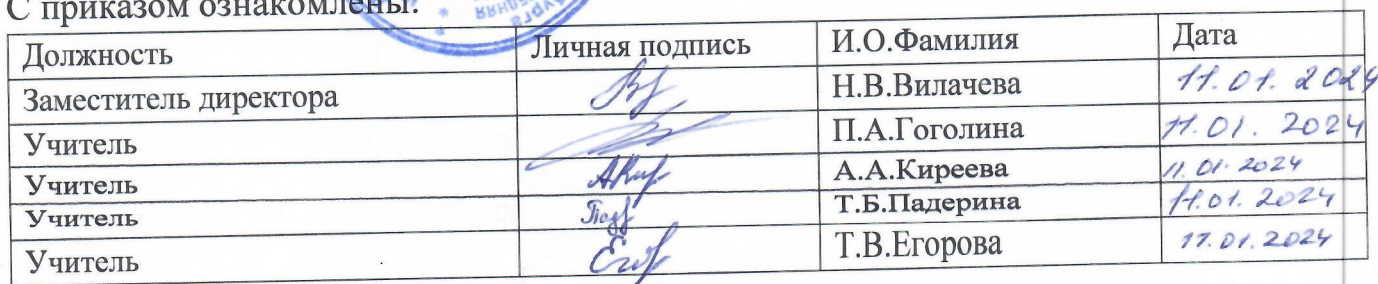 С приказом ознакомлены:
Должность Личная подпись И.О.Фамилия Дата
Заместитель директора Н.В.Вилачева 11.01.2024
Учитель П.А.Гоголина 11.01.2024
Учитель А.А.Киреева 11.01.2024
Учитель Т.Б.Падерина 11.01.2024
Учитель Т.В.Егорова 11.01.2024